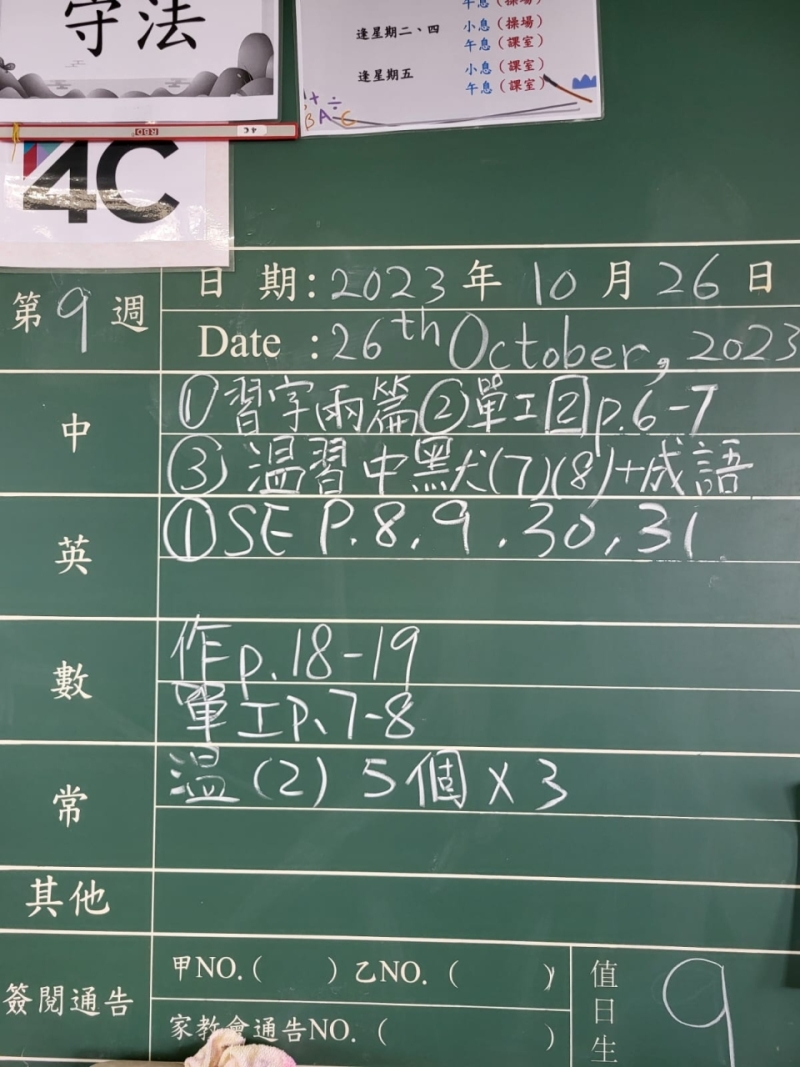 守法
午息（操場）
逢星期二、四 小息（操場）
午息（課室）
逢星期五 小息（課室）
午息（課室）
4C
第9週
日期：2023年10月26日
Date : 26th October, 2023
中
①習字兩篇②單工[2]p.6-7
③温習中默(7)(8)+成語
英
①SE P.8,9,30,31
數
作p.18-19
單工P.7-8
常
温(2) 5個×3
其他
簽閱通告
甲NO.（ ）乙NO.（ ）
家教會通告NO.（ ）
值日生
9